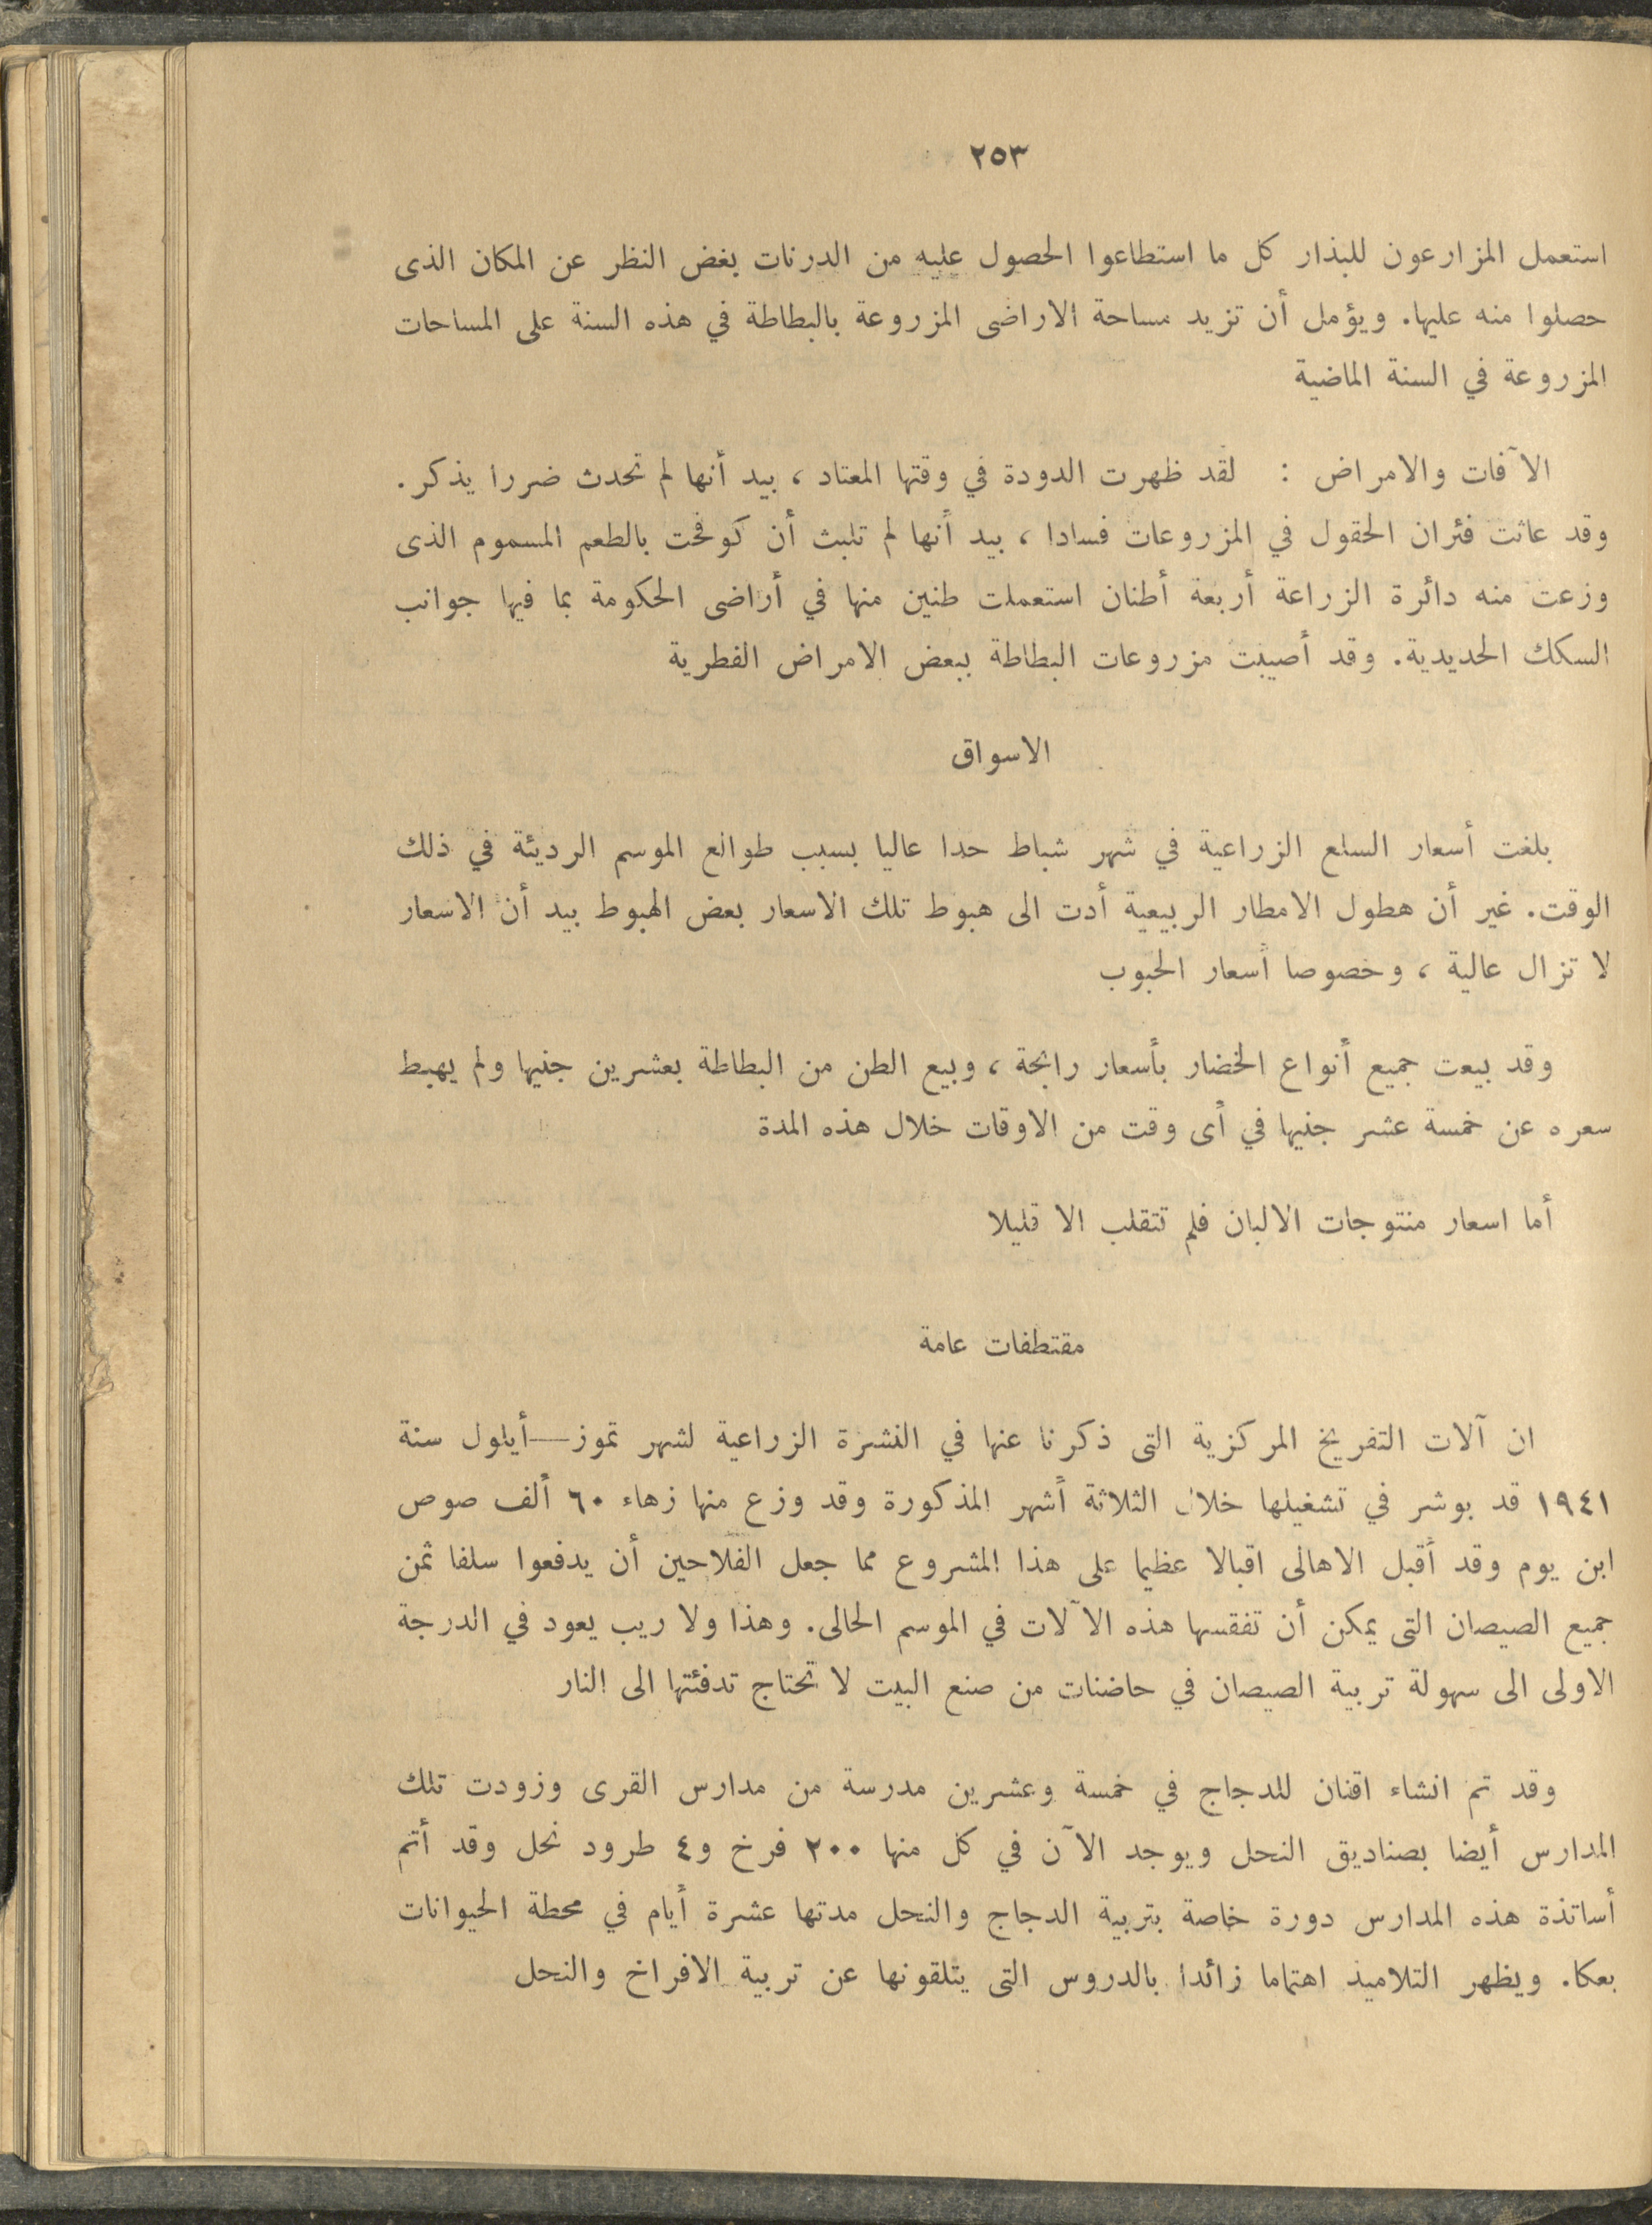 ٢٥٣
استعمل المزارعون للبذار كل ما استطاعوا الحصول عليه من الدرنات بغض النظر عن المكان الذى
حصلوا منه عليها. ويؤمل أن تزيد مساحة الاراضى المزروعة بالبطاطة في هذه السنة على المساحات
المزروعة في السنة الماضية
الآفات والامراض : لقد ظهرت الدودة في وقتها المعتاد ، بيد أنها لم تحدث ضررا يذكر.
وقد عاثت فئران الحقول في المزروعات فسادا ، بيد أنها لم تلبث أن كوفحت بالطعم المسموم الذى
وزعت منه دائرة الزراعة أربعة أطنان استعملت طنين منها في أراضى الحكومة بما فيها جوانب
السكك الحديدية. وقد أصيبت مزروعات البطاطة ببعض الامراض الفطرية
الاسواق
بلغت أسعار السلع الزراعية في شهر شباط حدا عاليا بسبب طوالع الموسم الرديئة في ذلك
الوقت. غير أن هطول الامطار الربيعية أدت الى هبوط تلك الاسعار بعض الهبوط بيد أن الاسعار
لا تزال عالية ، وخصوصا أسعار الحبوب
وقد بيعت جميع أنواع الخضار بأسعار رابحة ، وبيع الطن من البطاطة بعشرين جنيها ولم يهبط
سعره عن خمسة عشر جنيها في أى وقت من الاوقات خلال هذه المدة
أما اسعار منتوجات الالبان فلم تتقلب الا قليلا
مقتطفات عامة
ان آلات التفريخ المركزية التى ذكرنا عنها في النشرة الزراعية لشهر تموز—أيلول سنة
١٩٤١ قد بوشر في تشغيلها خلال الثلاثة أشهر المذكورة وقد وزع منها زهاء ٦٠ ألف صوص
ابن يوم وقد أقبل الاهالى اقبالا عظيما على هذا المشروع مما جعل الفلاحين أن يدفعوا سلفا ثمن
جميع الصيصان التى يمكن أن تفقسها هذه الآلات في الموسم الحالى. وهذا ولا ريب يعود في الدرجة
الاولى الى سهولة تربية الصيصان في حاضنات من صنع البيت لا تحتاج تدفئتها الى النار
وقد تم انشاء اقنان للدجاج في خمسة وعشرين مدرسة من مدارس القرى وزودت تلك
المدارس أيضا بصناديق النحل ويوجد الآن في كل منها ٢٠٠ فرخ و٤ طرود نحل وقد أتم
أساتذة هذه المدارس دورة خاصة بتربية الدجاج والنحل مدتها عشرة أيام في محطة الحيوانات
بعكا. ويظهر التلاميذ اهتماما زائدا بالدروس التى يتلقونها عن تربية الافراخ والنحل